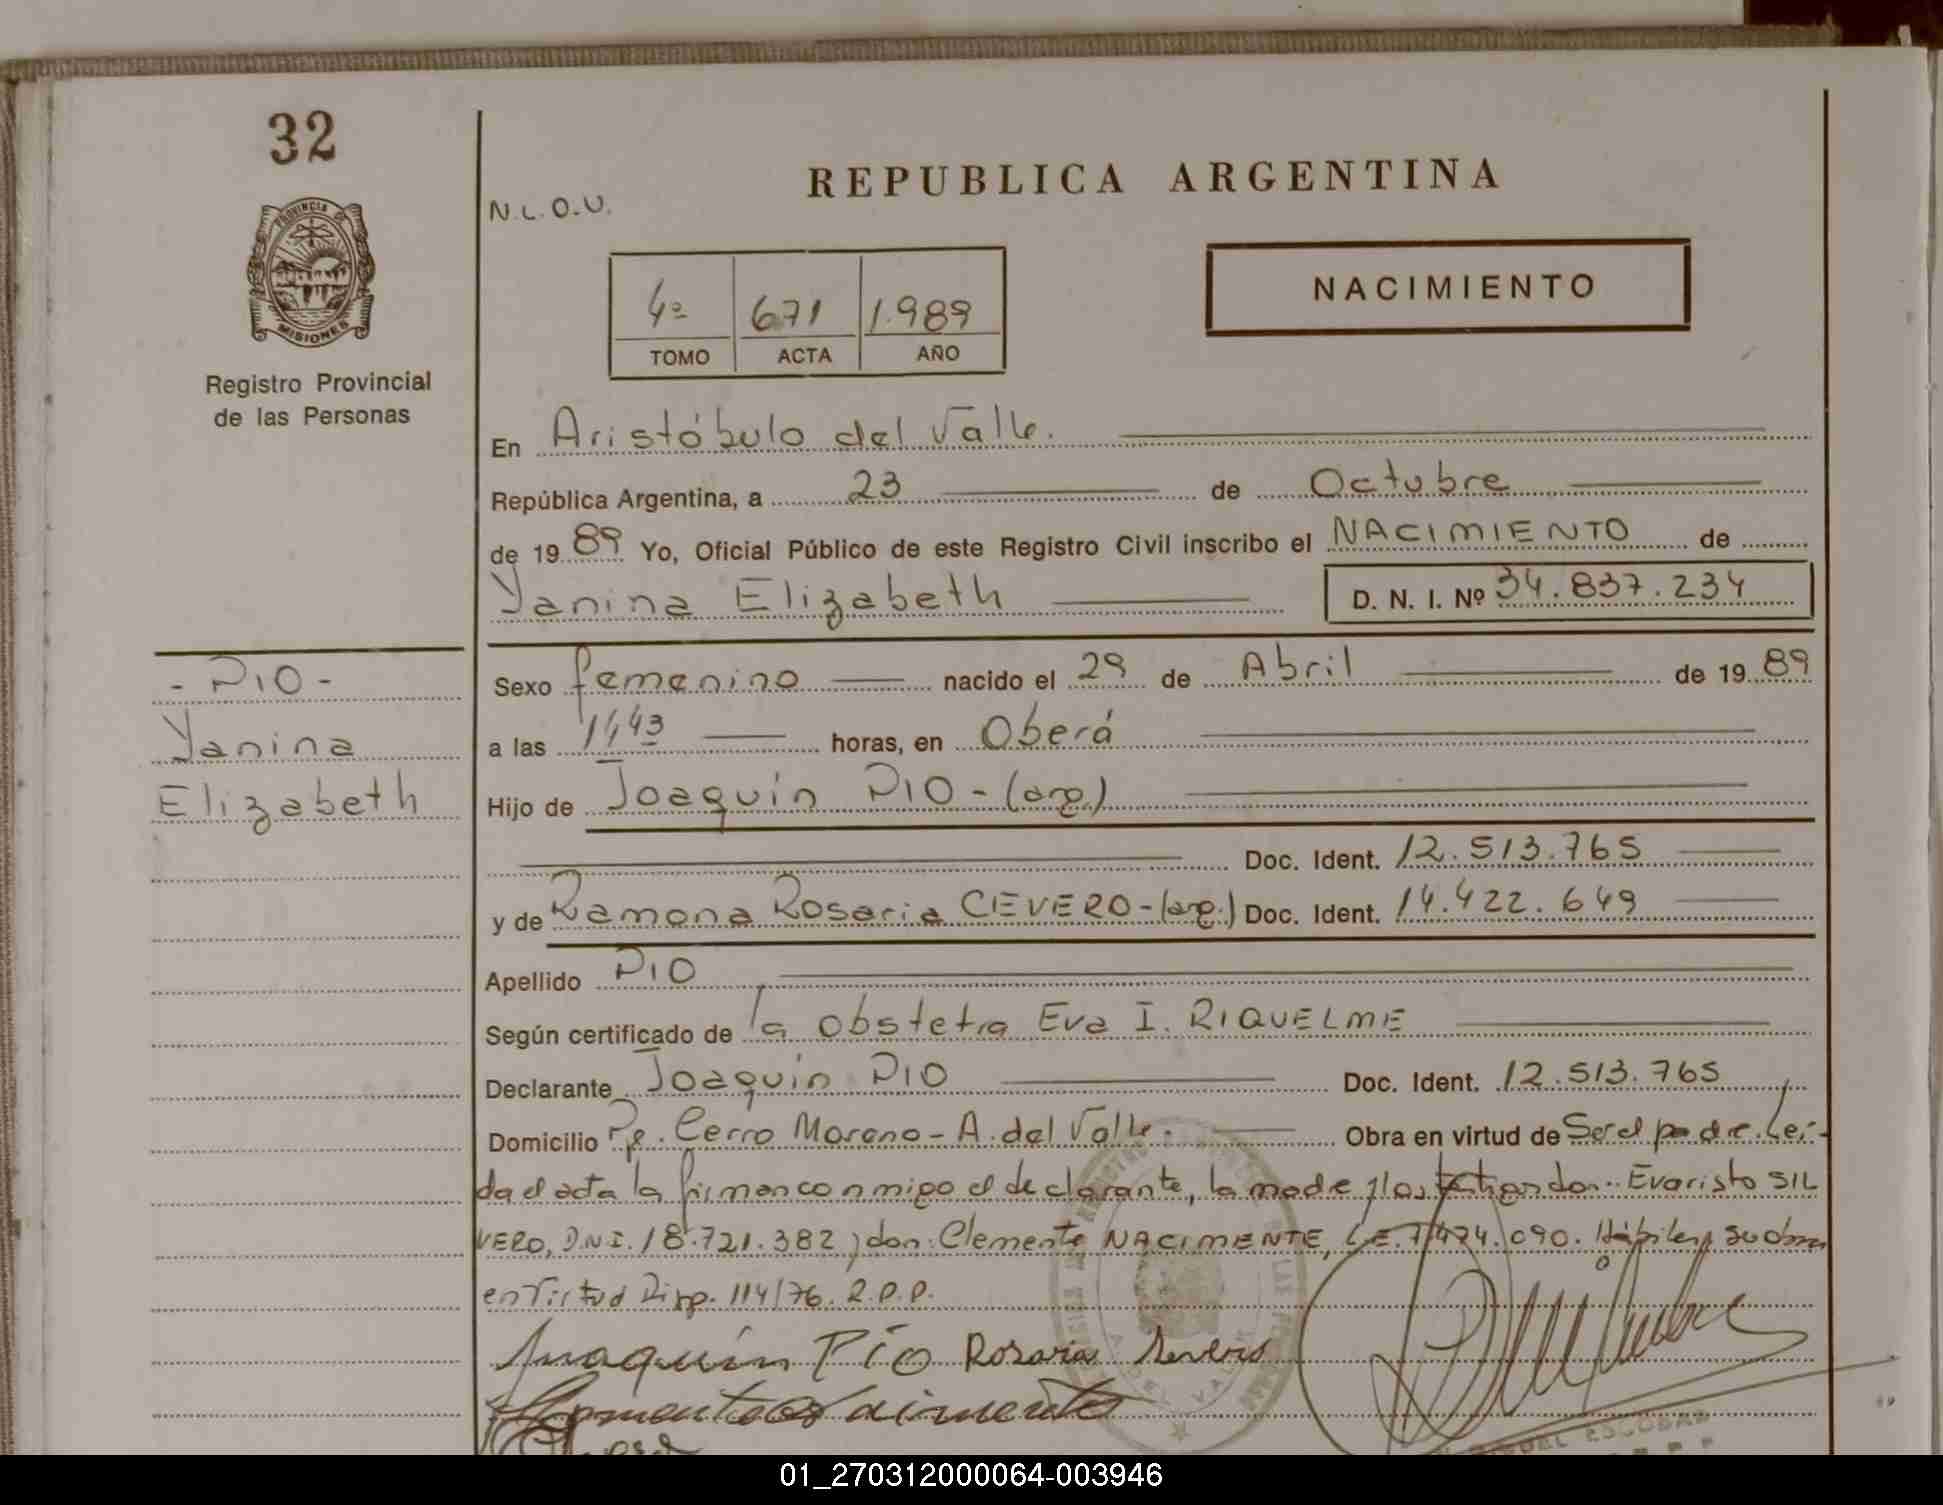 32
REPUBLICA ARGENTINA
N.L.O.U.
PROVINCIA DE
MISIONES
NACIMIENTO
4ª 671 1.989
TOMO ACTA AÑO
Registro Provincial
de las Personas
En Aristóbulo del Valle.
República Argentina, a 23 de Octubre
de 1989 Yo, Oficial Público de este Registro Civil inscribo el NACIMIENTO de
Yanina Elizabeth D. N. I. Nº 34.837.234
- PIO -
Yanina
Elizabeth
Sexo femenino nacido el 29 de Abril de 1989
a las 1,43 horas, en Oberá
Hijo de Joaquín PIO - (arg.)
Doc. Ident. 12.513.765
y de Ramona Rosaria CEVERO - (arg.) Doc. Ident. 14.422.649
Apellido PIO
Según certificado de la obstetra Eva I. RIQUELME
Declarante Joaquín PIO Doc. Ident. 12.513.765
Domicilio Pje. Cerro Moreno - A. del Valle. Obra en virtud de Ser el padre. Leí-
da el acta la firman conmigo el declarante, la madre y los testigos don: Evaristo SIL
VERO, D.N.I. 18.721.382 y don: Clemente NACIMENTE, L.E. 7.474.090. Hábiles,
en virtud Disp. 114/76. R.P.P.
Juaquín Pío Rosaria Severo
ESCOBAR
01_270312000064-003946